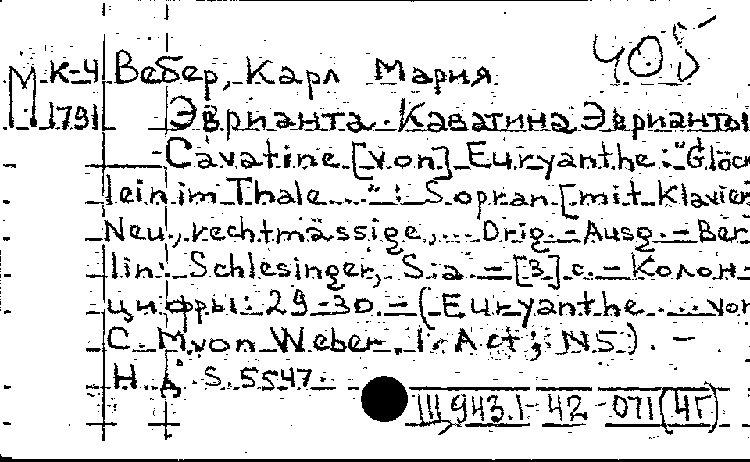 405
М К-4 Вебер, Карл Мария
1791 Эврианта. Каватина Эврианты
Cavatine [von] Euryanthe: "Glöck
lein im Thale ..." : Sopran [mit Klavier
Neu, rechtmässige, ... Orig.-Ausg. - Ber
lin: Schlesinger, S.a. - [3] с. - Колон-
цифры: 29-30. - (Euryanthe ... von
C. M. von Weber. 1. Act; N5). -
Н.д. S.5547.
III 943.1-42-071(4Г)